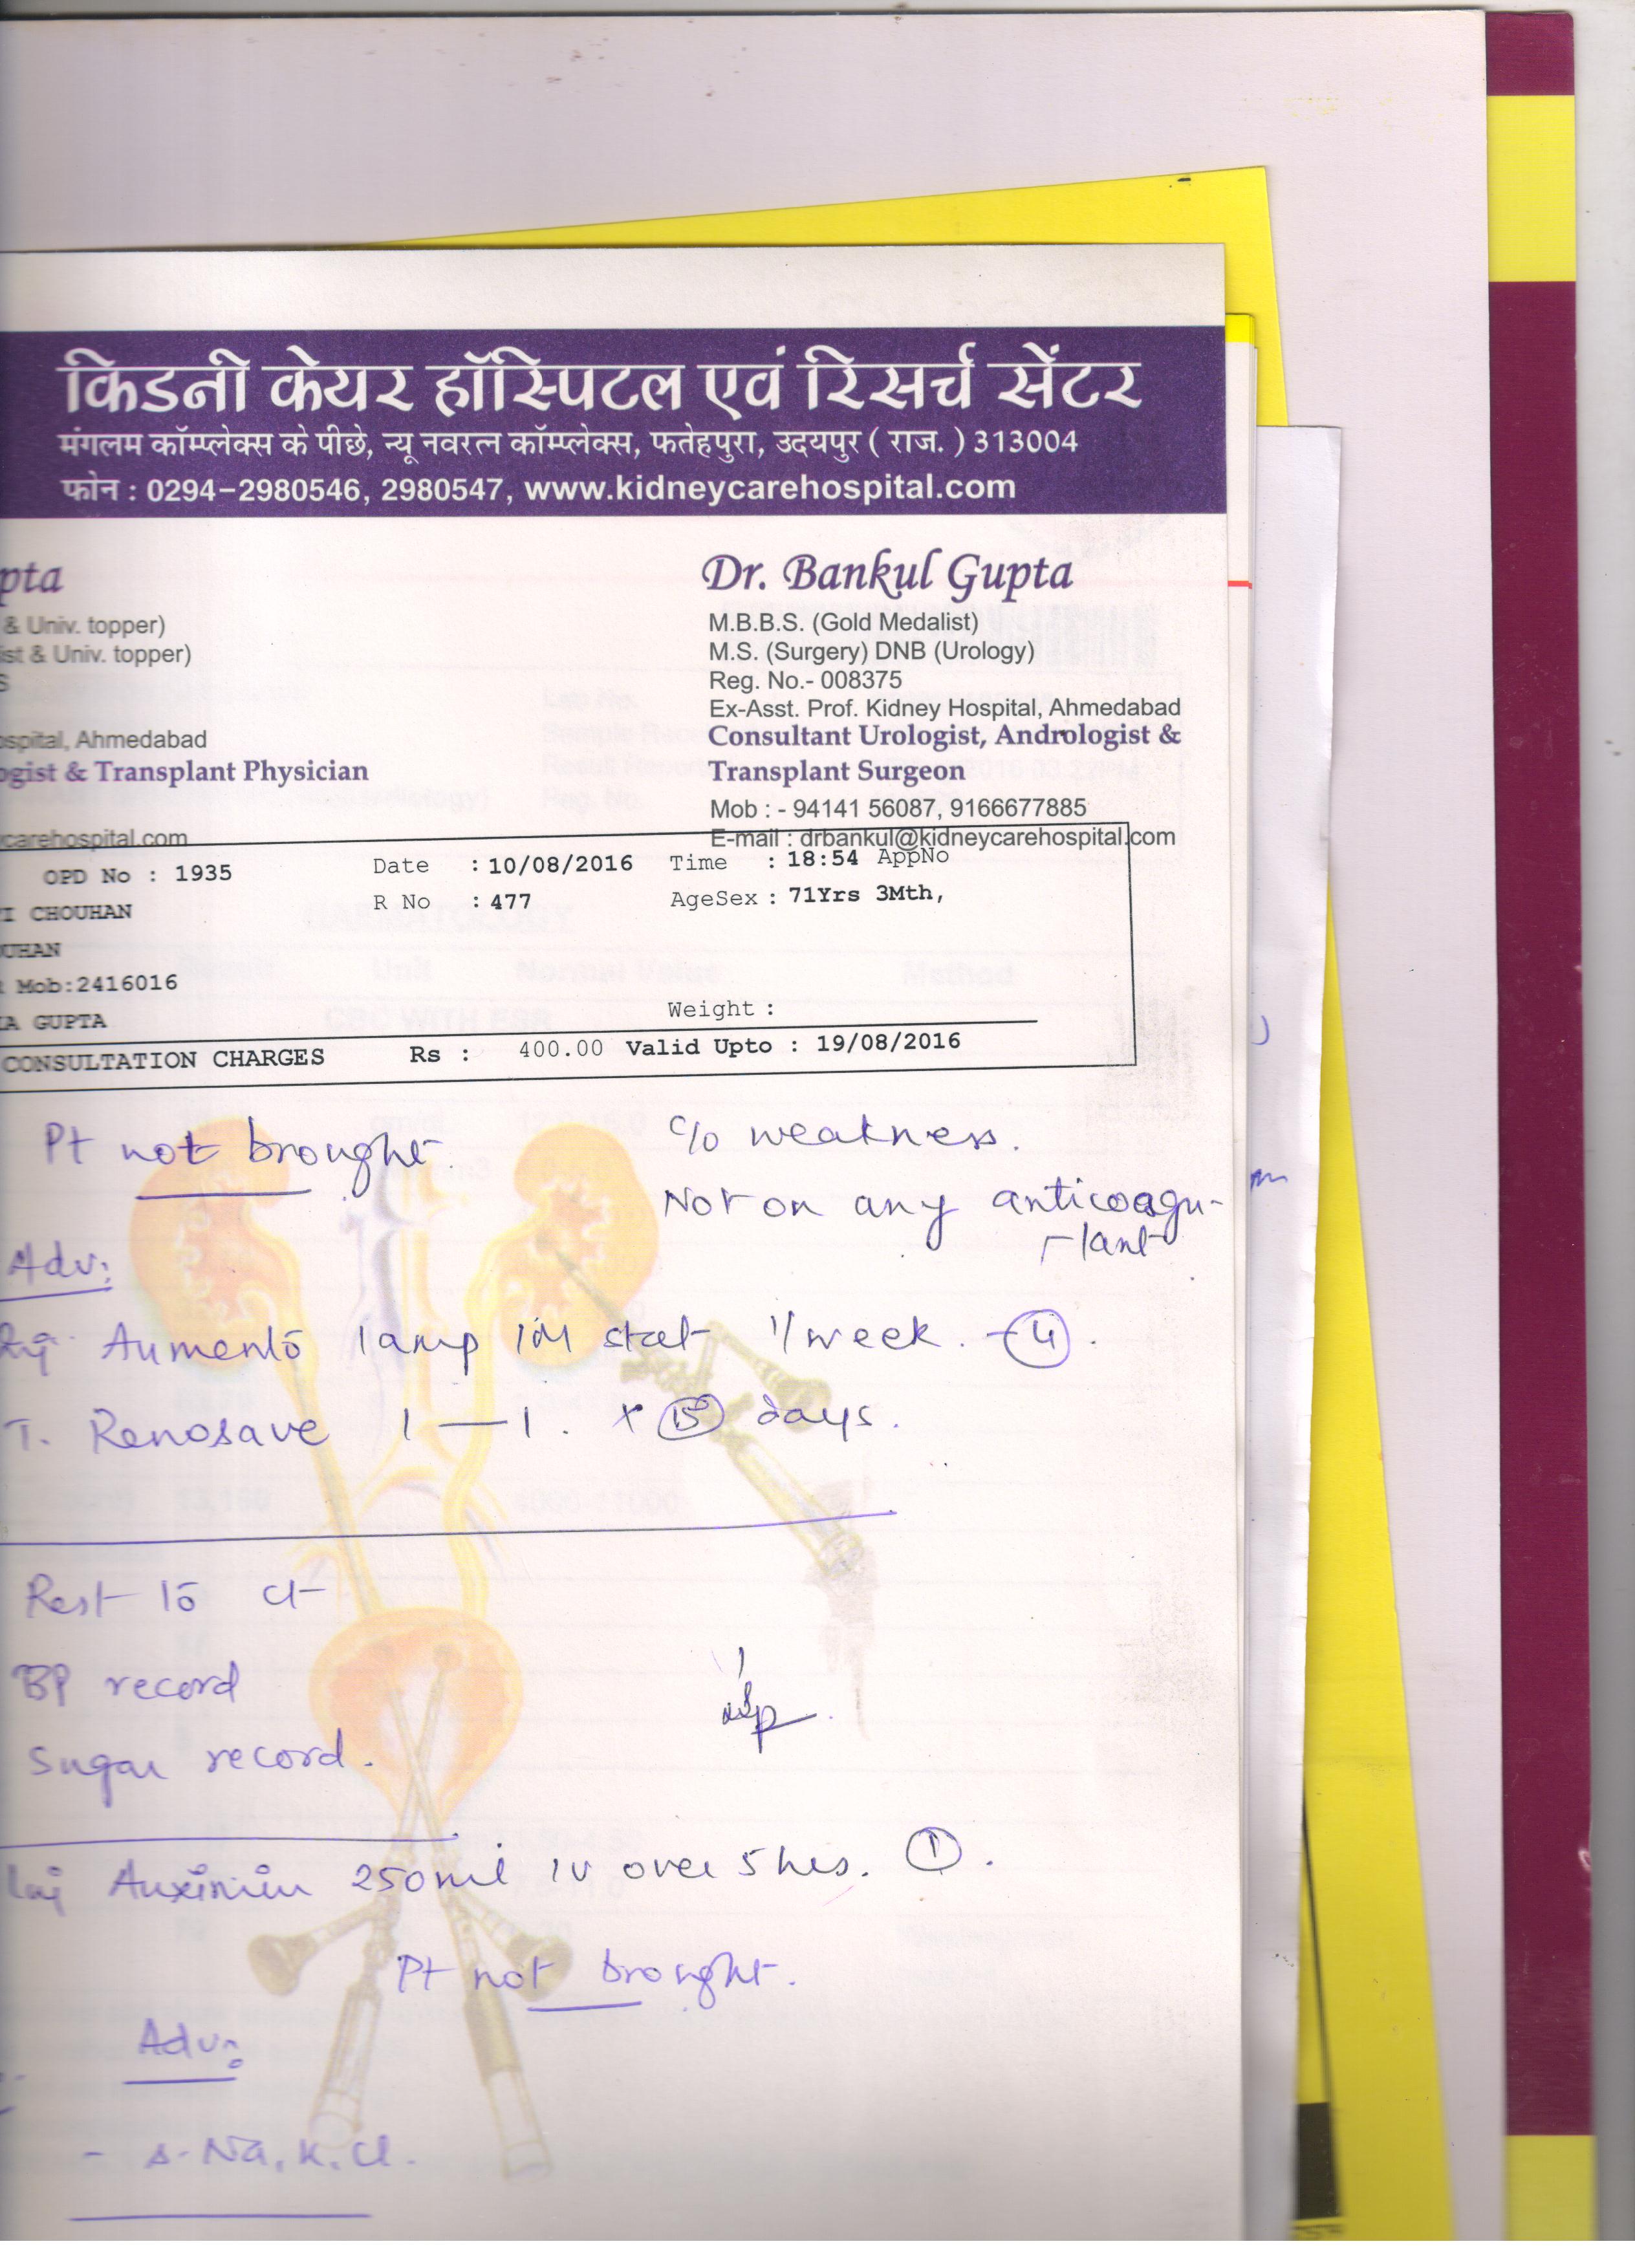 किडनी केयर हॉस्पिटल एवं रिसर्च सेंटर
मंगलम कॉम्प्लेक्स के पीछे, न्यू नवरत्न कॉम्प्लेक्स, फतेहपुरा, उदयपुर ( राज. ) 313004
फोन : 0294-2980546, 2980547, www.kidneycarehospital.com
pta
& Univ. topper)
ist & Univ. topper)
S
ospital, Ahmedabad
ogist & Transplant Physician
carehospital.com
Dr. Bankul Gupta
M.B.B.S. (Gold Medalist)
M.S. (Surgery) DNB (Urology)
Reg. No.- 008375
Ex-Asst. Prof. Kidney Hospital, Ahmedabad
Consultant Urologist, Andrologist &
Transplant Surgeon
Mob : - 94141 56087, 9166677885
E-mail : drbankul@kidneycarehospital.com
OPD No : 1935 Date : 10/08/2016 Time : 18:54 AppNo
I CHOUHAN R No : 477 AgeSex : 71Yrs 3Mth,
OUHAN
Mob:2416016
A GUPTA Weight :
CONSULTATION CHARGES Rs : 400.00 Valid Upto : 19/08/2016
Pt not brought.
c/o weakness.
Not on any anticoagu-
-lant
Adv:
Aumento 1 amp IM stat 1/week. - 4.
T. Renosave 1 — 1. x 15 days.
Rest to ct
BP record
Sugar record.
Inj 250ml IV over 5 hrs. 1.
Pt not brought.
Adv:
- s. Na, K, Cl.